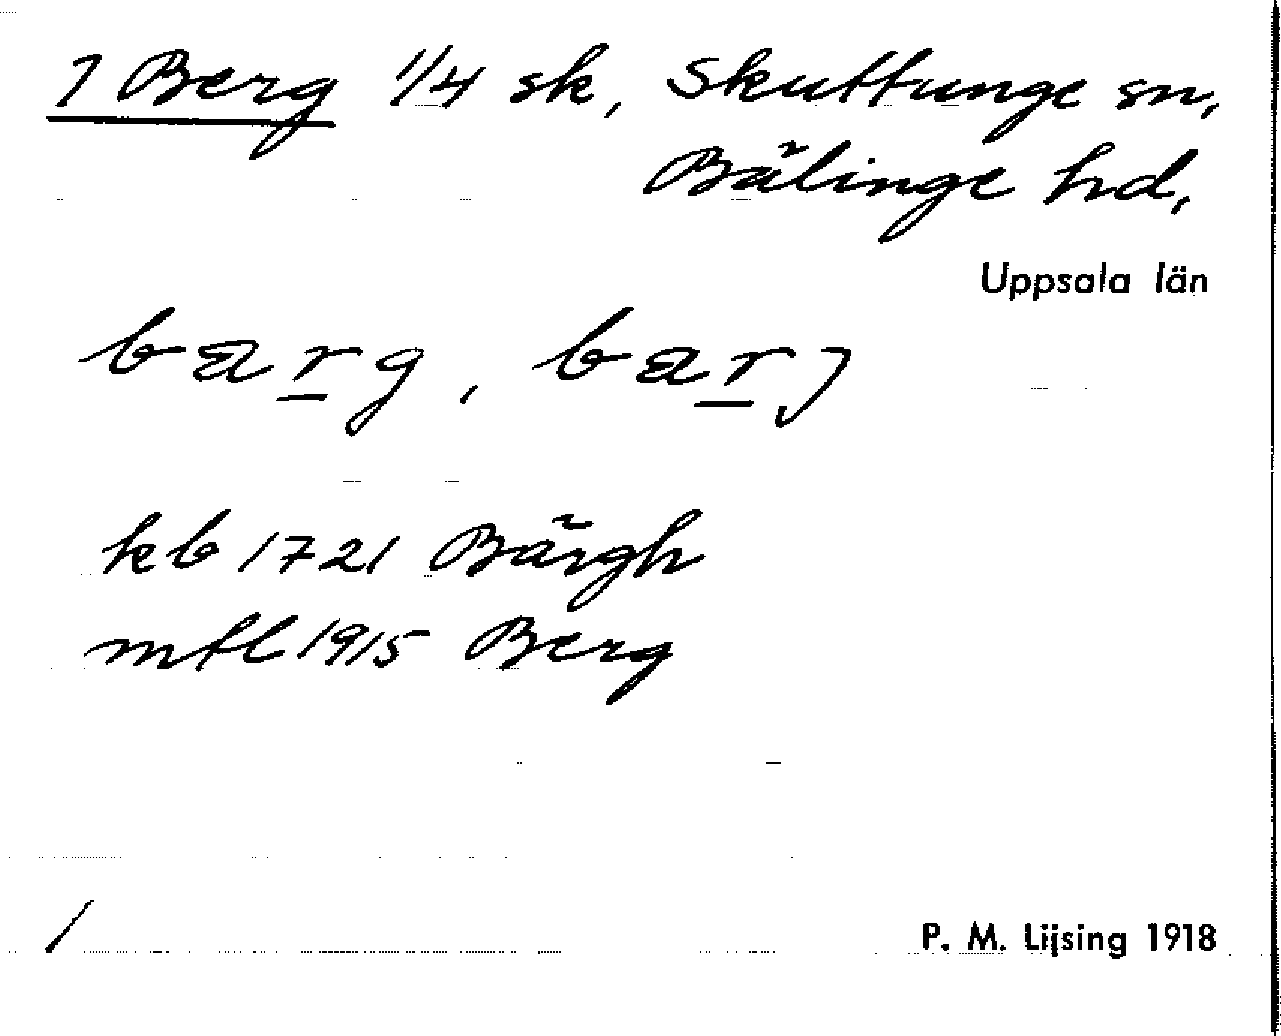 1 Berg 1/4 sk, Skuttunge sn,
Bälinge hd,
Uppsala län
bærg, bærj
kb 1721 Bärgh
mtl 1915 Berg
P. M. Lijsing 1918